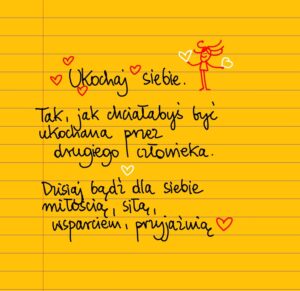 Ukochaj siebie.
Tak, jak chciałabyś być
ukochana przez
drugiego człowieka.
Dzisiaj bądź dla siebie
miłością, siłą,
wsparciem, przyjaźnią